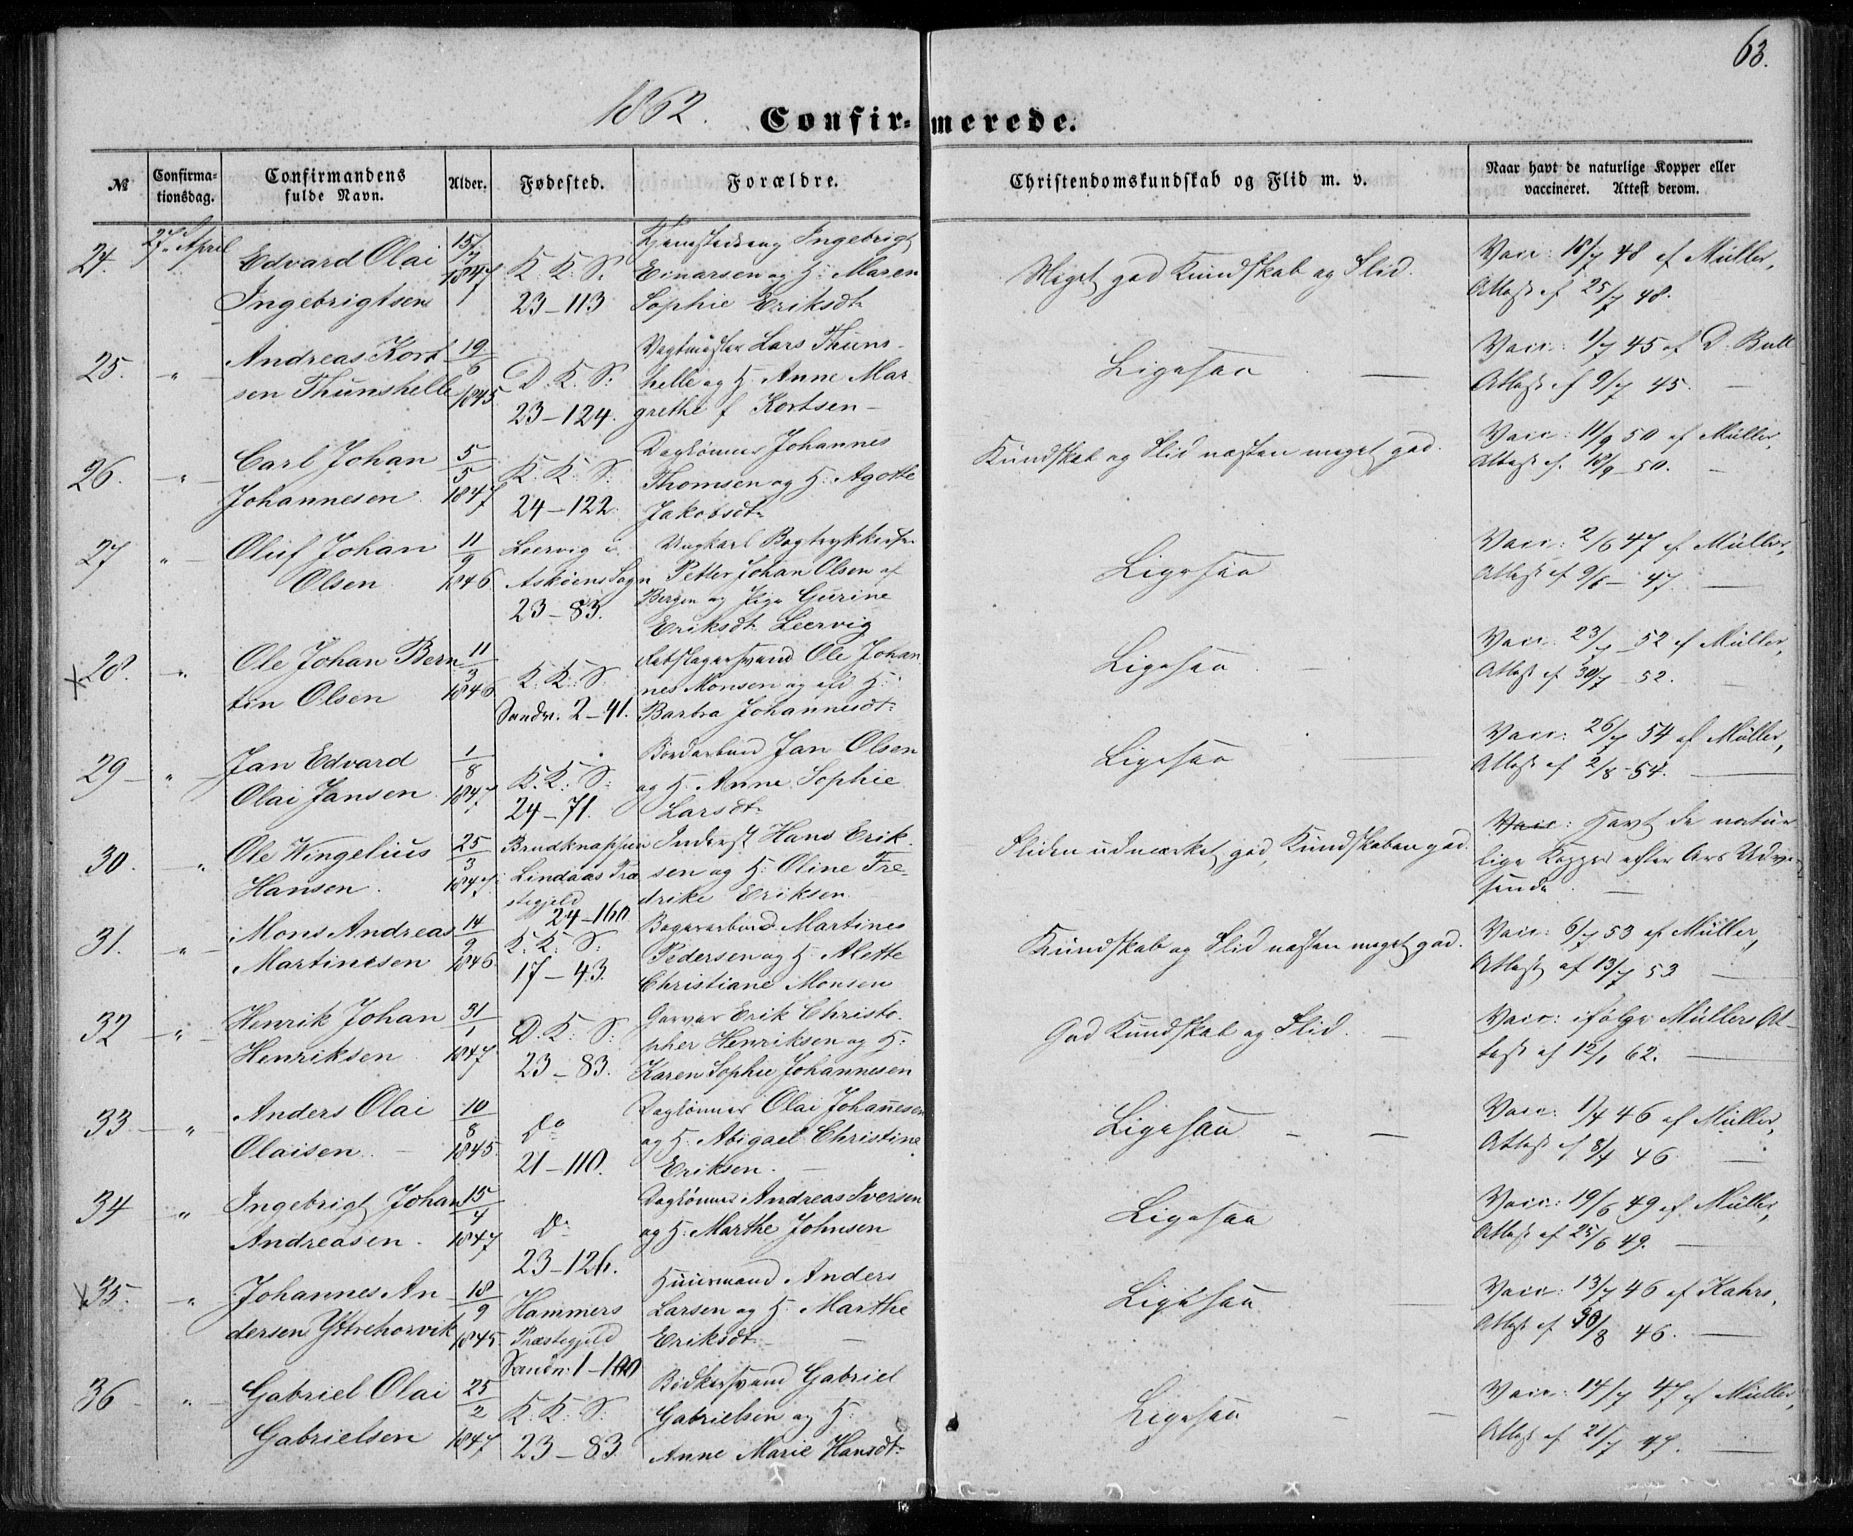 63.
1862.
Confirmerede.
№
Confirmationsdag.
Confirmandens fulde Navn.
Alder.
Fødested.
Forældre.
Christendomskundskab og Flid m. v.
Naar havt de naturlige Kopper eller vaccineret. Attest derom.
24. 27. April Edvard Olai 15/7 1847 K. K. S. Ingebrigt
Ingebrigtsen 23-113 Einarsen og H: Maren
Sophie Eriksdt
Meget god Kundskab og Flid.
Vacc: 18/7 48 af Müller,
Attest af 25/7 48.
25. " Andreas Kort- 19/6 1845 D. K. S: Vagtmester Lars Thuns-
sen Thunshelle 23-124. helle og H. Anne Mar
grethe f Kortsen-
Ligesaa
Vacc: 1/7 45 af D. Bull
Attest af 9/7 45.
26. " Carl Johan 5/5 1847 K. K. S: Daglønner Johannes
Johannesen 24-122. Thomsen og H: Agathe
Jakobsdt
Kundskab og Flid næsten meget god.
Vacc: 11/9 50 af Müller,
Attest af. 18/9 50.
27 " Oluf Johan 11/9 1846 Leervig i Ungkarl Bogtrykkersv
Olsen Askøens Sogn Petter Johan Olsen af
23-83. Bergen og Pige Gurine
Eriksdt Leervig
Ligesaa
Vacc: 2/6 47 af Müller,
Attest af 9/6 - 47.
x 28. " Ole Johan Bern 11/3 1846 K: K: S: Rebslagersvend Ole Johan
tin Olsen Sandv. 2-41. nes Monsen og H:
Barbra Johannesdt:
Ligesaa
Vacc: 23/7 52 af Müller,
Attest af 30/7 52.
29 " Jan Edvard 1/8 1847 K. K: S: Bordarbeid Jan Olsen
Olai Jansen 24-71. og H. Anne Sophie
Larsdt
Ligesaa
Vacc: 26/7 54 af Müller,
Attest af 2/8 - 54.
30. " Ole Wingelius 25/3 1847 Brudknappen Inderst Hans Erik-
Hansen. Lindaas Præ sen og H: Oline Fre-
stegjeld drike Eriksen
24-160
Fliden udmærket god, Kundskaben god.
Vacc: Havt de natur
lige Kopper efter Ars Udvi-
sende.
31. " Mons Andreas 14/9 1846 K. K: S: Bagerarbeid Martines
Martinesen 17-43. Pedersen og H. Alethe
Christiane Monsen
Kundskab og Flid næsten meget god.
Vacc: 6/7 53 af Müller,
Attest af 13/7 53
32 " Henrik Johan 31/1 1847 D. K: S: Garver Erik Christo-
Henriksen 23-83. pher Henriksen og H:
Karen Sophie Johannesen
God Kundskab og Flid.
Vacc: ifølge Müllers At-
test af 12/1 62.
33 " Anders Olai 10/8 1845 Do Daglønner Olai Johannesen
Olaisen 21-110. og H. Abigael Christine
Eriksen.
Ligesaa
Vacc: 1/4 46 af Müller,
Attest af 8/4 46
34 " Ingebrigt Johan 15/4 1847 Do Daglønner Andreas Iversen
Andreasen. 23-126. og H. Marthe Johnsen
Ligesaa
Vacc: 19/6 49 af Müller,
Attest af 25/6 49.
x 35. " Johannes An- 18/9 1845 Hammers Huusmand Anders
dersen Ystrehorvik Præstegjeld Larsen og H. Marthe
Sandv. 1-100 Eriksdt
Ligesaa
Vacc: 13/7 46 af Kahrs,
Attest af 30/8 46.
36 " Gabriel Olai 25/2 1847 K. K: S: Bødkersvend Gabriel
Gabrielsen 23-83 Gabrielsen og H:
Anne Marie Hansdt
Ligesaa
Vacc: 14/7 47 af Müller,
Attest af 21/7 47.